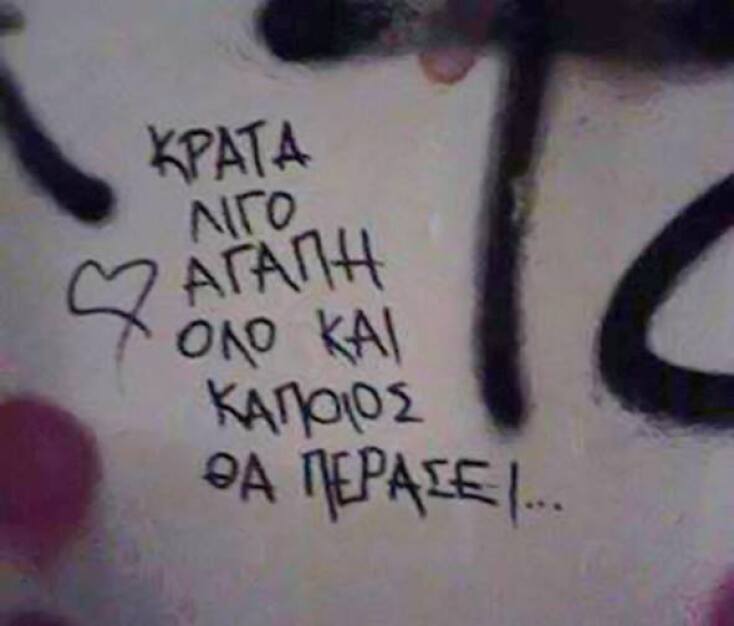 ΚΡΑΤΑ
ΛΙΓΟ
ΑΓΑΠΗ
ΟΛΟ ΚΑΙ
ΚΑΠΟΙΟΣ
ΘΑ ΠΕΡΑΣΕΙ...